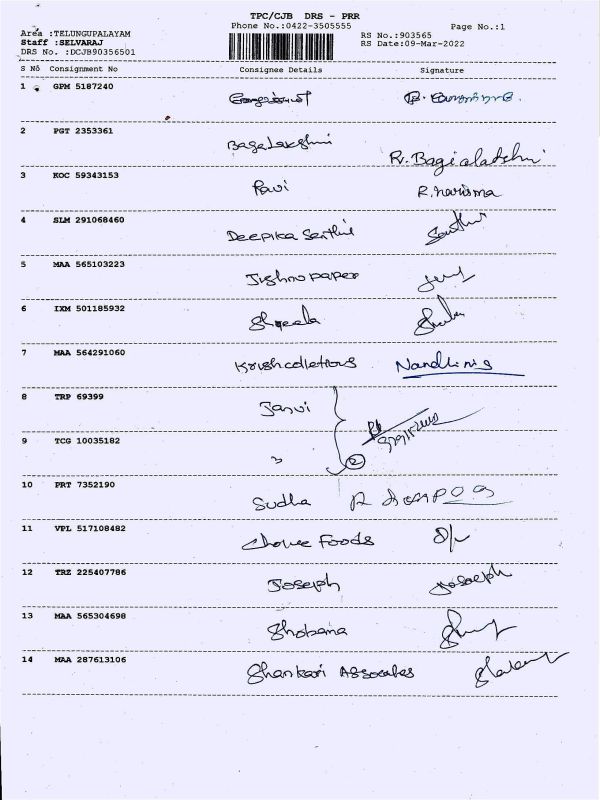 TPC/CJB DRS - PRR
Phone No.:0422-3505555
Page No.:1
Area :TELUNGUPALAYAM
Staff :SELVARAJ
DRS No. :DCJB90356501
RS No.:903565
RS Date:09-Mar-2022
S No Consignment No Consignee Details Signature
1 GPM 5187240
2 PGT 2353361 BagaLakshmi R. Bagialakshmi
3 KOC 59343153 Pavi R.narisma
4 SLM 291068460 Deepika Senthil
5 MAA 565103223 Jishnu paper
6 IXM 501185932 Sheela
7 MAA 564291060 Krish colletions Nandhinis
8 TRP 69399 Janvi
9 TCG 10035182 " 2
10 PRT 7352190 Sudha
11 VPL 517108482 Choice Foods
12 TRZ 225407786 Joseph Joseph
13 MAA 565304698 Shobana
14 MAA 287613106 Shankari Associates